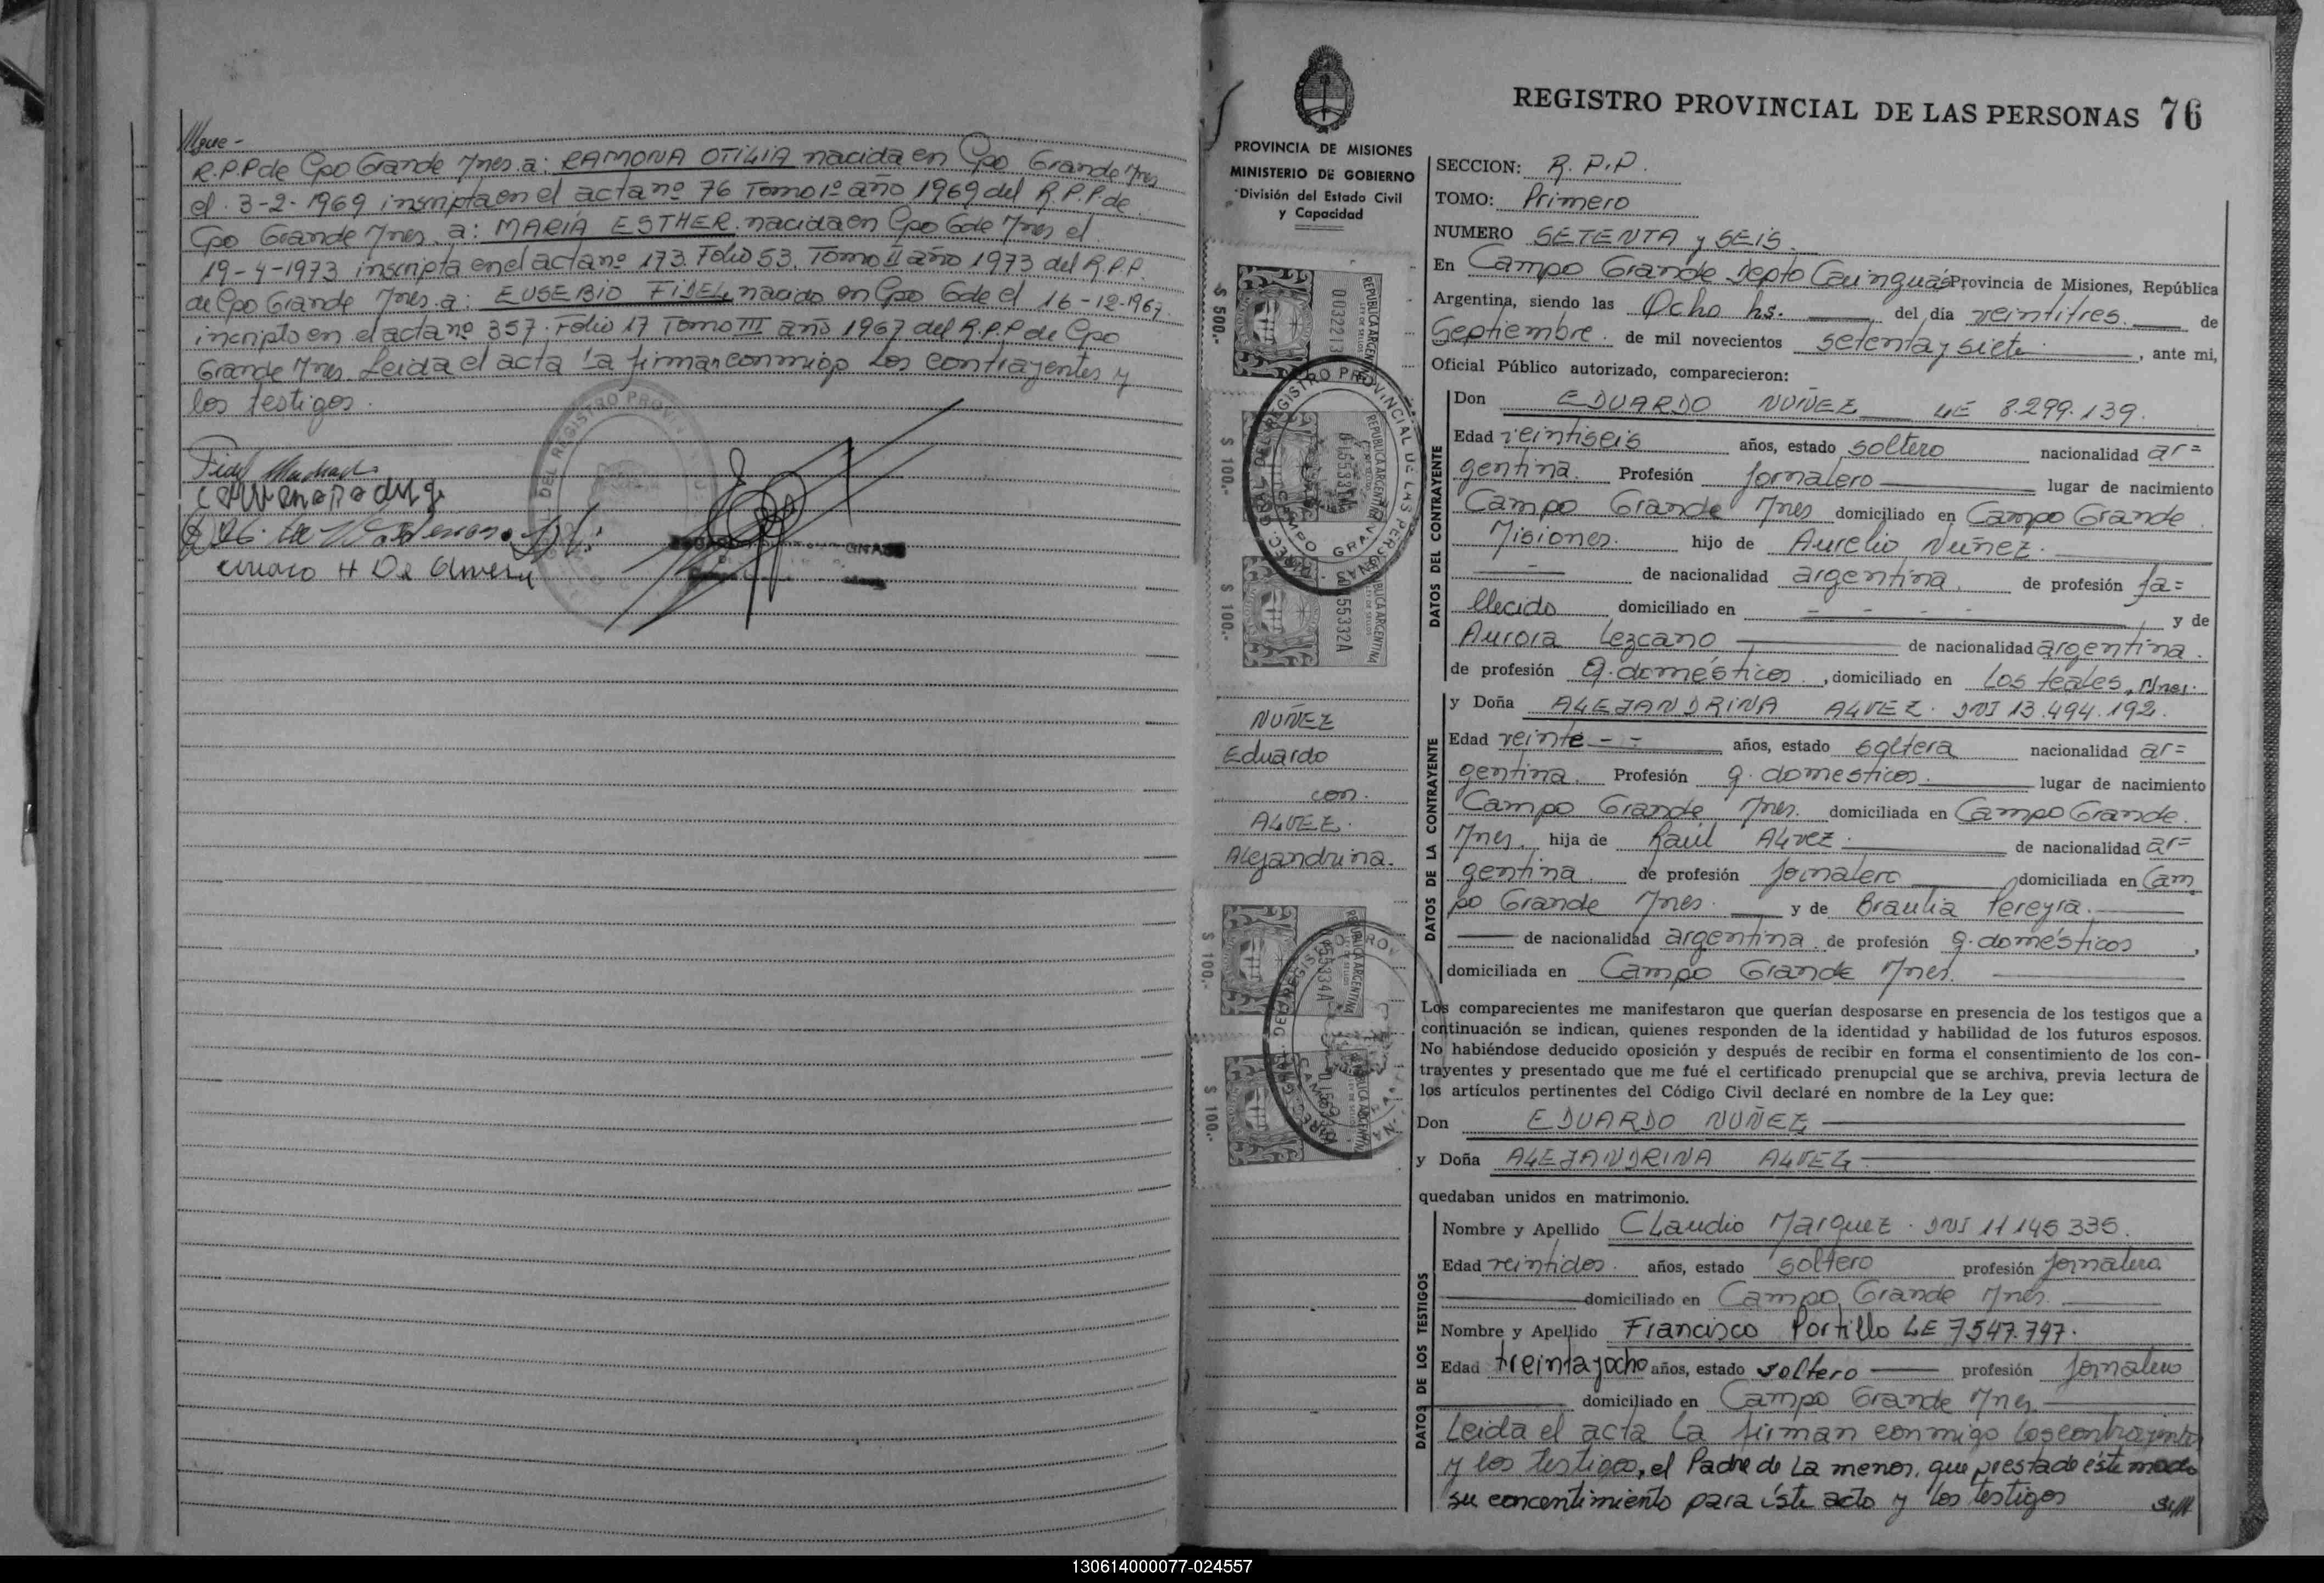 R.P.P de Cpo Grande Mnes. a: RAMONA OTILIA nacida en Cpo Grande Mnes
el 3-2-1969 inscripta en el acta nº 76 Tomo 1º año 1969 del R.P.P. de
Cpo Grande Mnes. a: MARIA ESTHER nacida en Cpo Gde Mnes el
19-4-1973 inscripta en el acta nº 173 Folio 53. Tomo II año 1973 del R.P.P.
de Cpo Grande Mnes. a: EUSEBIO FIDEL nacido en Cpo Gde el 16-12-1967
incripto en el acta nº 357. Folio 17 Tomo III año 1967 del R.P.P de Cpo
Grande Mnes. Leida el acta la firman conmigo los contrayentes y
los testigos.
REGISTRO PROVINCIAL DE LAS PERSONAS 76
PROVINCIA DE MISIONES
MINISTERIO DE GOBIERNO
División del Estado Civil
y Capacidad
$ 500.-
$ 100.-
$ 100.-
NUÑEZ
Eduardo
con.
ALVEZ.
Alejandrina.
$ 100.-
$ 100.-
SECCION: R.P.P.
TOMO: Primero
NUMERO SETENTA y SEIS.
En Campo Grande Depto Cainguás Provincia de Misiones, República
Argentina, siendo las Ocho hs. del día veintitres. de
Septiembre. de mil novecientos setenta y siete, ante mi,
Oficial Público autorizado, comparecieron:
DATOS DEL CONTRAYENTE
Don EDUARDO NUÑEZ LE 8.299.139.
Edad veintiseis años, estado soltero nacionalidad ar=
gentina. Profesión Jornalero lugar de nacimiento
Campo Grande Mnes domiciliado en Campo Grande
Misiones. hijo de Aurelio Nuñez.
de nacionalidad argentina. de profesión fa=
llecido domiciliado en - - - - y de
Aurora Lezcano de nacionalidad argentina.
de profesión q. domésticos, domiciliado en Los teales, Mnes.
DATOS DE LA CONTRAYENTE
y Doña ALEJANDRINA ALVEZ. DNI 13.494.192.
Edad veinte -- años, estado soltera nacionalidad ar=
gentina. Profesión q. domesticos. lugar de nacimiento
Campo Grande Mnes. domiciliada en Campo Grande.
Mnes. hija de Raúl Alvez. de nacionalidad ar=
gentina. de profesión Jornalero domiciliada en Cam
po Grande Mnes. y de Braulia Pereyra.
de nacionalidad argentina. de profesión q. domésticos,
domiciliada en Campo Grande Mnes.
Los comparecientes me manifestaron que querían desposarse en presencia de los testigos que a
continuación se indican, quienes responden de la identidad y habilidad de los futuros esposos.
No habiéndose deducido oposición y después de recibir en forma el consentimiento de los con-
trayentes y presentado que me fué el certificado prenupcial que se archiva, previa lectura de
los artículos pertinentes del Código Civil declaré en nombre de la Ley que:
Don EDUARDO NUÑEZ
y Doña ALEJANDRINA ALVEZ
quedaban unidos en matrimonio.
DATOS DE LOS TESTIGOS
Nombre y Apellido Claudio Marquez. DNI 11 145 335.
Edad veintidos. años, estado soltero profesión Jornalero.
domiciliado en Campo Grande Mnes.
Nombre y Apellido Francisco Portillo LE 7.547.797.
Edad treinta y ocho años, estado soltero profesión Jornalero
domiciliado en Campo Grande Mnes.
Leida el acta la firman conmigo los contrayentes
y los testigos, el Padre de la menor, que presta de este modo
su concentimiento para éste acto y los testigos
130614000077-024557